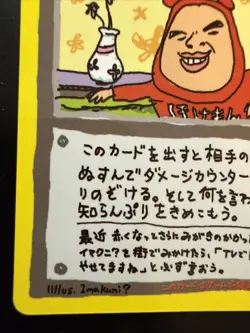 ぼけまん
このカードを出すと相手の
ぬすんでダメージカウンター
りのぞける。そして何を言わ
知らんぷりをきめこもう。
最近 赤くなってさらにみがきのかかった
イマクニ?を街でみかけたら、「テレビ
やせてますね」と必ず言おう。
Illus. Imakuni?